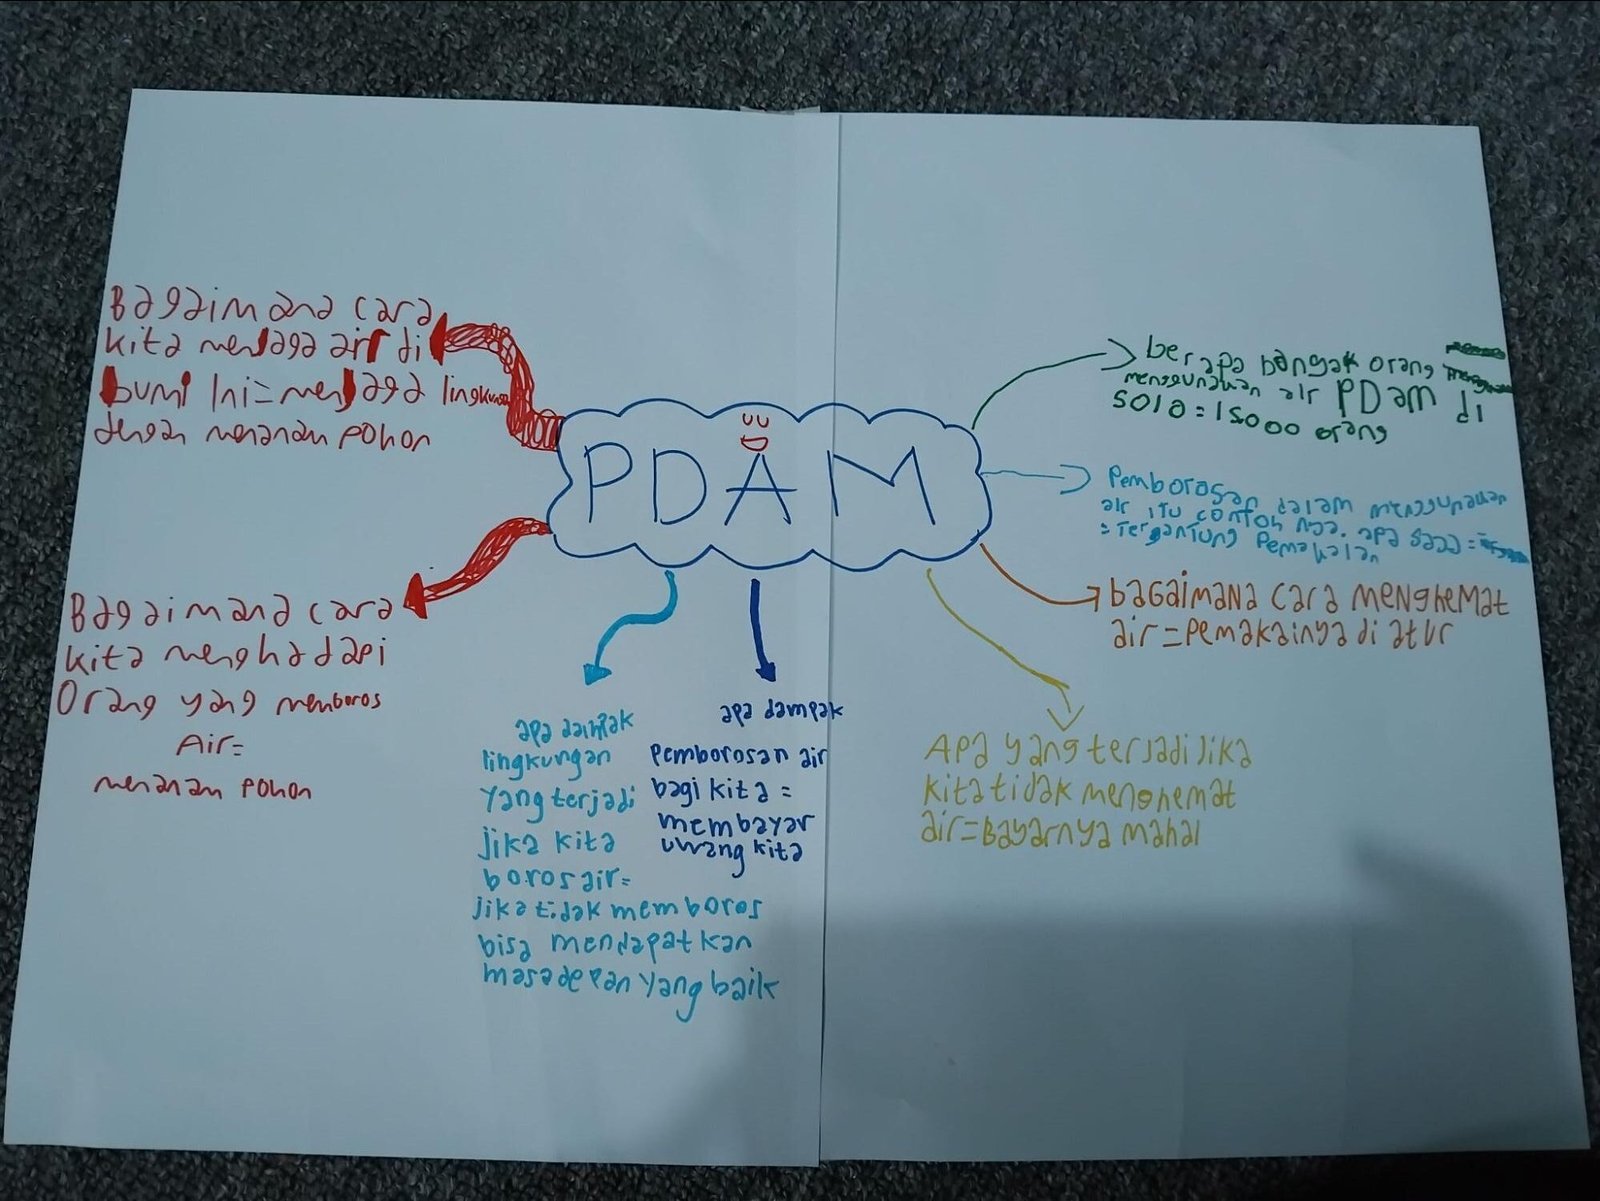 Bagaimana cara
kita menjaga air di
bumi Ini = menjaga lingkungan
dengan menanam pohon
Bagaimana cara
kita menghadapi
Orang yang memboros
Air =
menanam pohon
PDAM
apa dampak
lingkungan
yang terjadi
jika kita
boros air =
jika tidak memboros
bisa mendapatkan
masadepan yang baik
apa dampak
pemborosan air
bagi kita =
membayar
uwang kita
berapa banyak orang
menggunakan air PDAM di
solo = 15000 orang
Pemborosan dalam menggunakan
air itu contoh nya. apa saja =
= Tergantung Pemakaian
bagaimana cara menghemat
air = pemakainya di atur
Apa yang terjadi Jika
kita tidak menghemat
air = Bayarnya mahal